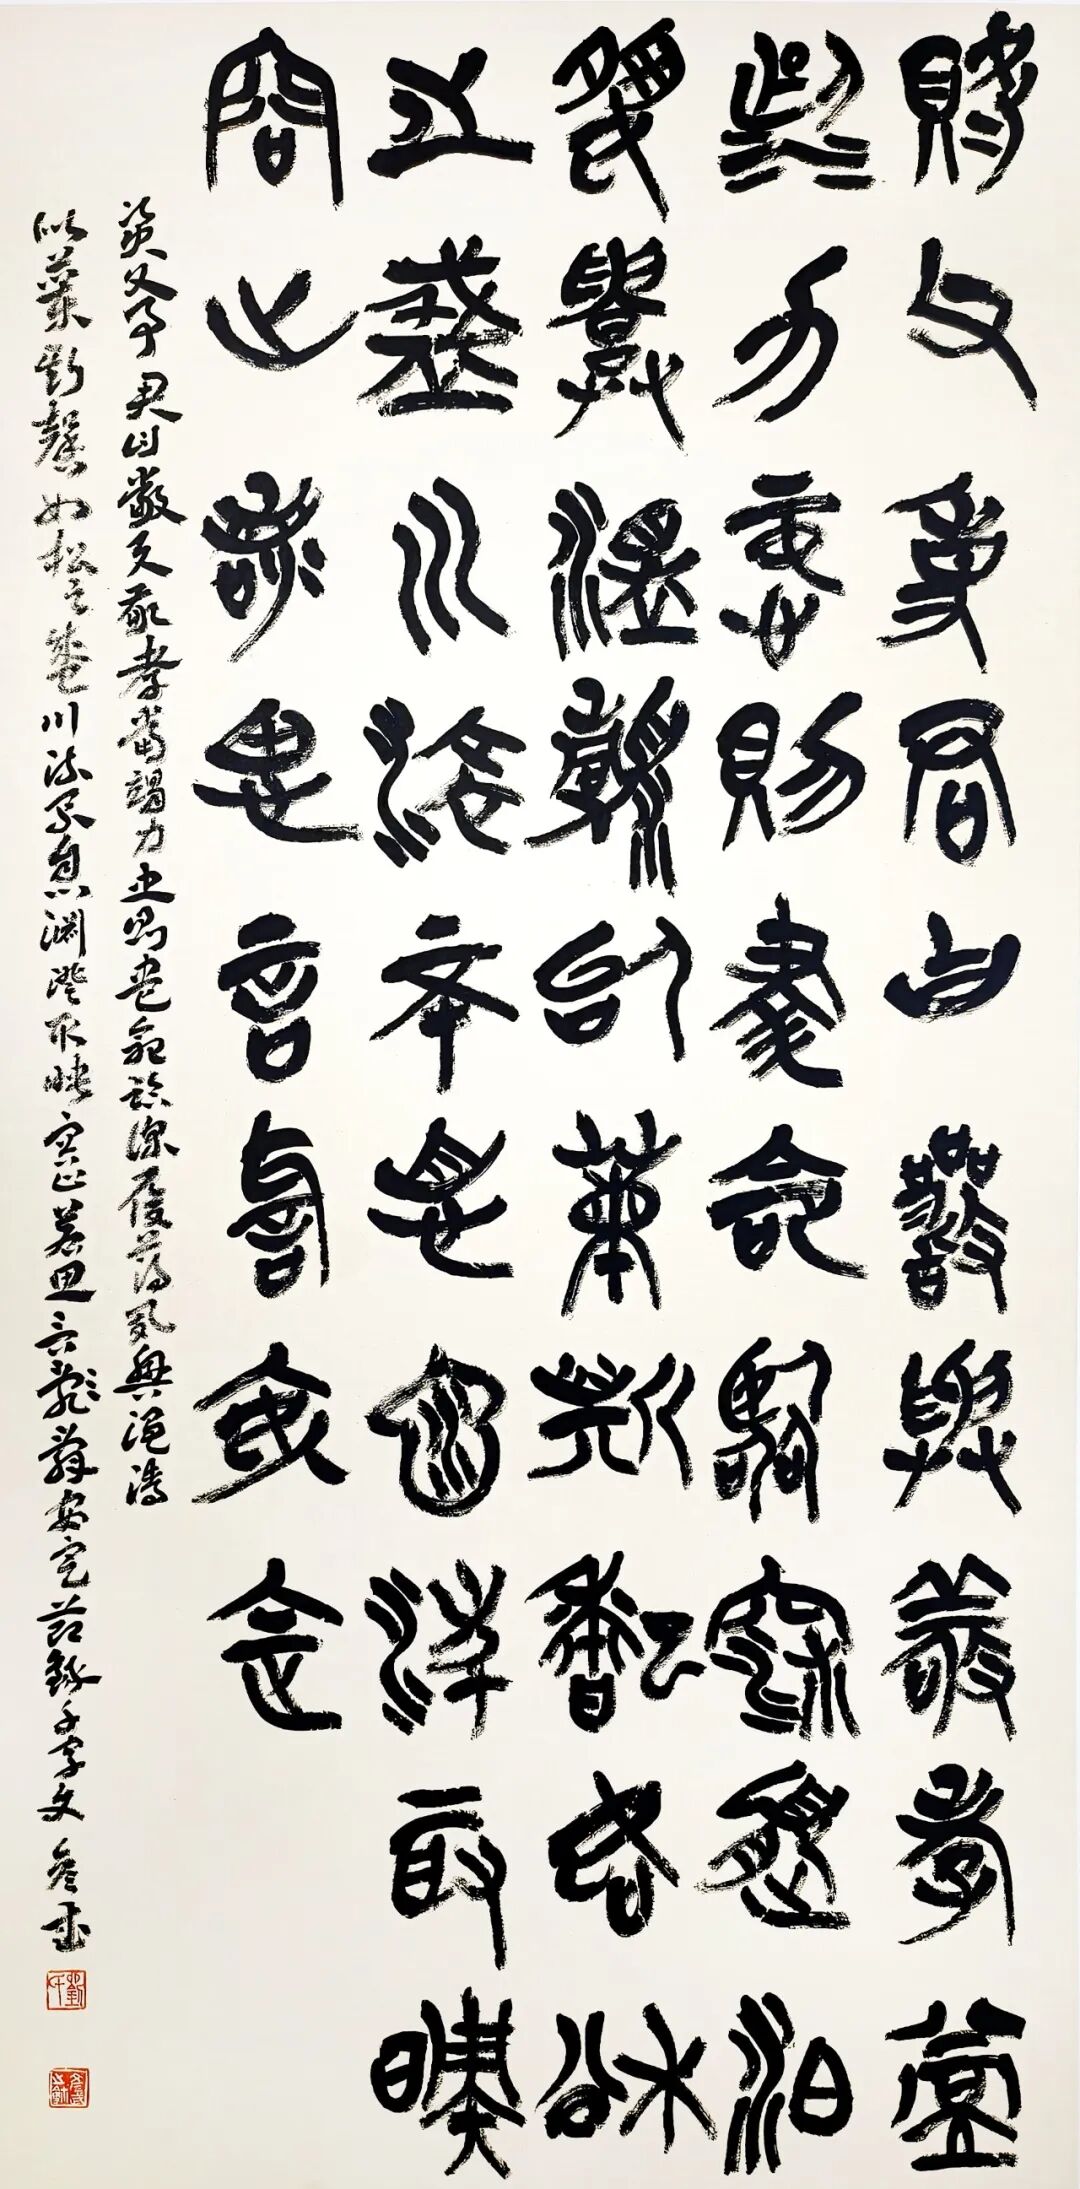 資父事君曰嚴與敬孝當
竭力忠則盡命臨深履薄
夙興溫凊似蘭斯馨如松
之盛川流不息淵澄取映
容止若思言辭安定
資父事君曰嚴與敬孝當竭力忠則盡命臨深履薄夙興溫凊
似蘭斯馨如松之盛川流不息淵澄取映容止若思言辭安定節錄千字文